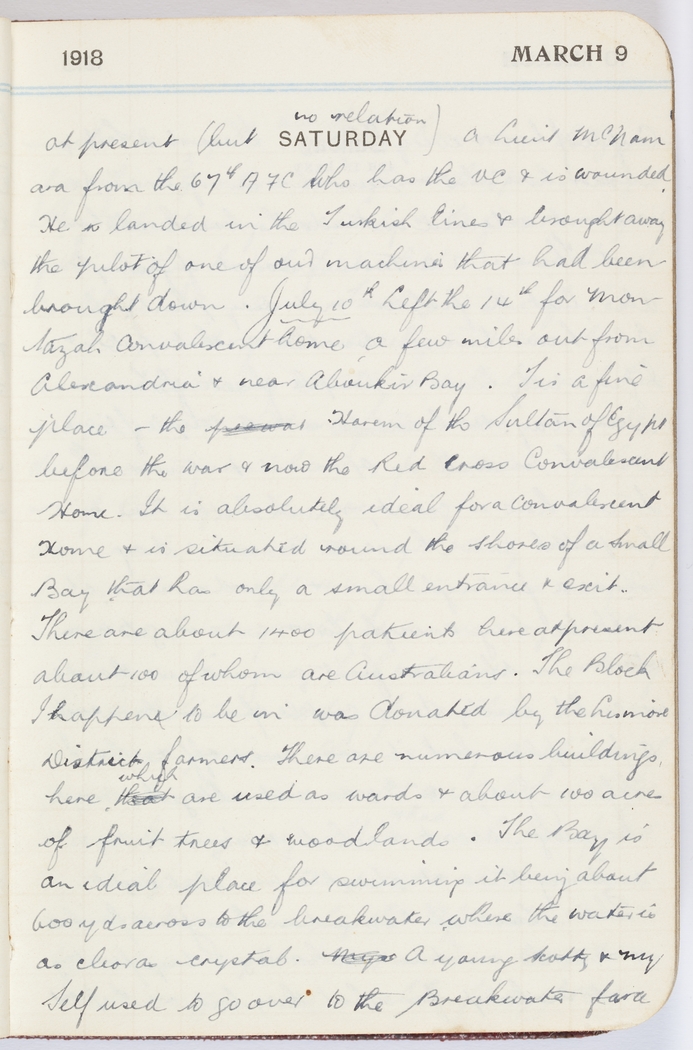 1918 MARCH 9
no relation)
at present (but SATURDAY a Lieut McNam
ara from the 67th A F C who has the VC & is wounded.
He landed in the Turkish lines & brought away
the pilot of one of our machines that had been
brought down. July 10th Left the 14th for Mon-
tazah Convalescent home, a few miles out from
Alexandria & near Aboukir Bay. Tis a fine
place - the Harem of the Sultan of Egypt
before the war & now the Red Cross Convalescent
Home. It is absolutely ideal for a convalescent
Home & is situated round the shores of a small
Bay that has only a small entrance & exit..
There are about 1400 patients here at present
about 100 of whom are Australians. The Block
I happene to be in was donated by the Lismore
District farmers. There are numerous buildings,
which
here that are used as wards & about 100 acres
of fruit trees & woodlands. The Bay is
an idial place for swimming it being about
600 yds across to the breakwater where the water is
as clear as crystal. Mys A young Scotty & my
self used to go over to the Breakwater for a